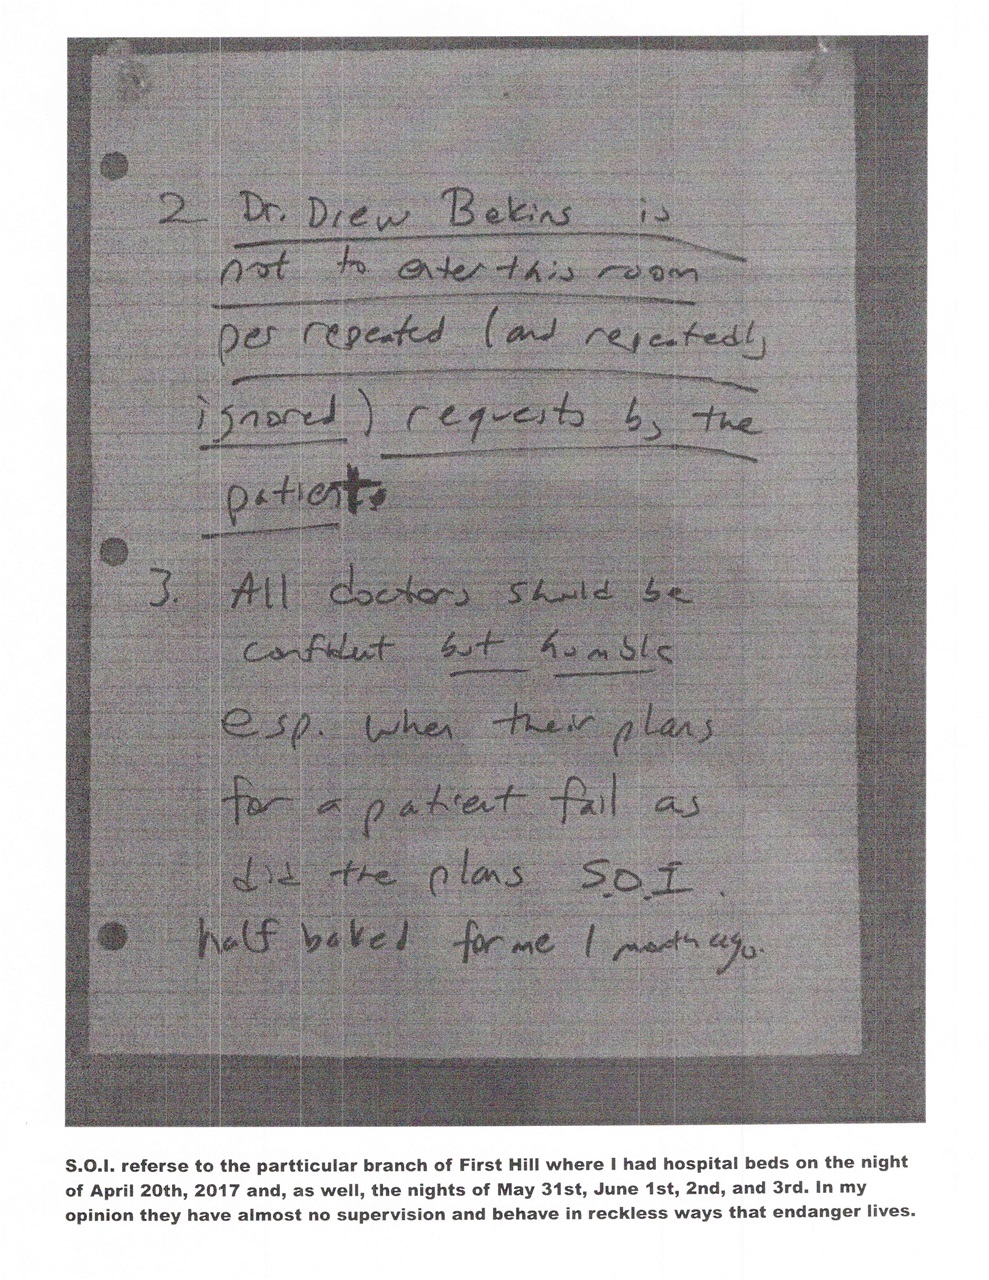 2 Dr. Drew Bekins is
not to enter this room
per repeated (and repeatedly
ignored) requests by the
patient.
3. All doctors should be
confident but humble
esp. when their plans
for a patient fail as
did the plans S.O.I.
half baked for me 1 month ago.
S.O.I. referse to the partticular branch of First Hill where I had hospital beds on the night
of April 20th, 2017 and, as well, the nights of May 31st, June 1st, 2nd, and 3rd. In my
opinion they have almost no supervision and behave in reckless ways that endanger lives.